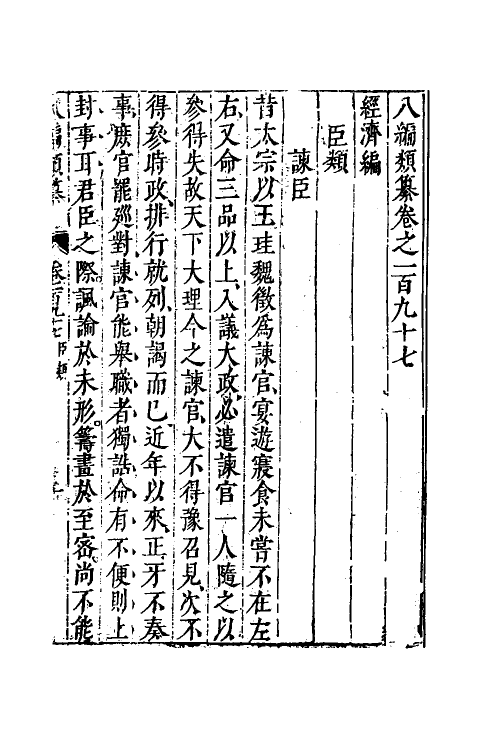 八編類纂卷之二百九十七
經濟編
臣類
諫臣
昔太宗以王珪魏徵爲諫官宴遊寢食未嘗不在左
右又命三品以上入議大政必遣諫官一人隨之以
參得失故天下大理今之諫官大不得豫召見次不
得參時政排行就列朝謁而已近年以來正牙不奏
事庶官罷廵對諫官能舉職者獨誥命有不便則上
封事耳君臣之際諷諭於未形籌畫於至密尚不能
八編類纂 卷二百九十七 臣類